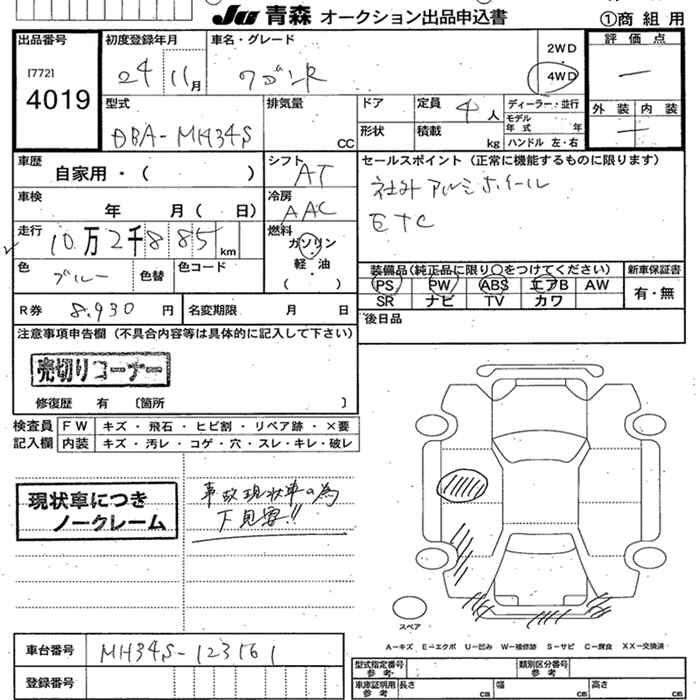 JU 青森 オークション出品申込書
①商組用
出品番号
[772]
4019
初度登録年月
24 11月
車名・グレード
ワゴンR
2WD
4WD
評価点
―
外装 内装
―
型式
DBA-MH34S
排気量
CC
ドア
形状
定員
4人
積載
kg
ディーラー・並行
モデル年式 年
ハンドル 左・右
車歴
自家用・( )
シフト
AT
セールスポイント (正常に機能するものに限ります)
社外アルミホイール
ETC
車検
年 月( 日)
冷房
AAC
走行
10万2千885 km
燃料
ガソリン
軽・油
( )
色
ブルー
色替
色コード
装備品(純正品に限り○をつけてください)
PS PW ABS エアB AW
SR ナビ TV カワ
新車保証書
有・無
R券
8,930 円
名変期限 月 日
後日品
注意事項申告欄 (不具合内容等は具体的に記入して下さい)
売切りコーナー
修復歴 有 〔箇所 〕
検査員記入欄
FW キズ・飛石・ヒビ割・リペア跡・×要
内装 キズ・汚レ・コゲ・穴・スレ・キレ・破レ
現状車につき
ノークレーム
事故現状車の為
下見要!!
スペア
A−キズ E−エクボ U−凹み W−補修跡 S−サビ C−腐食 XX−交換済
車台番号
MH34S-123161
登録番号
型式指定番号 参考
類別区分番号 参考
車庫証明用 参考
長さ CB
幅 CB
高さ CB